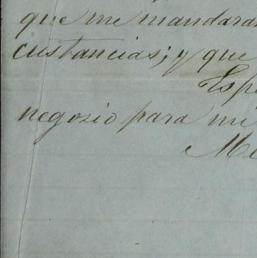 que me mandara
custancias; y que
Espe
negozio para mi
Me